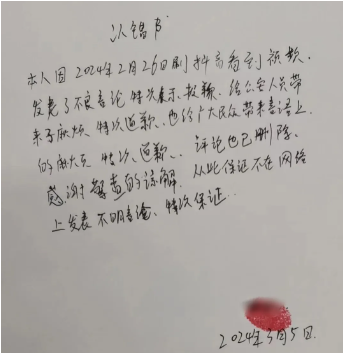 认错书
本人因2024年2月26日刷抖音看到视频.
发表了不良言论 特次表示.抱歉. 给公安人员带
来了麻烦、特次道歉. 也给广大民众带来言语上.
的麻烦 特次.道歉. 评论也已删除、
感谢警查的谅解. 从此保证不在网络
上发表不明言论、特次保证.
2024年3月5日.